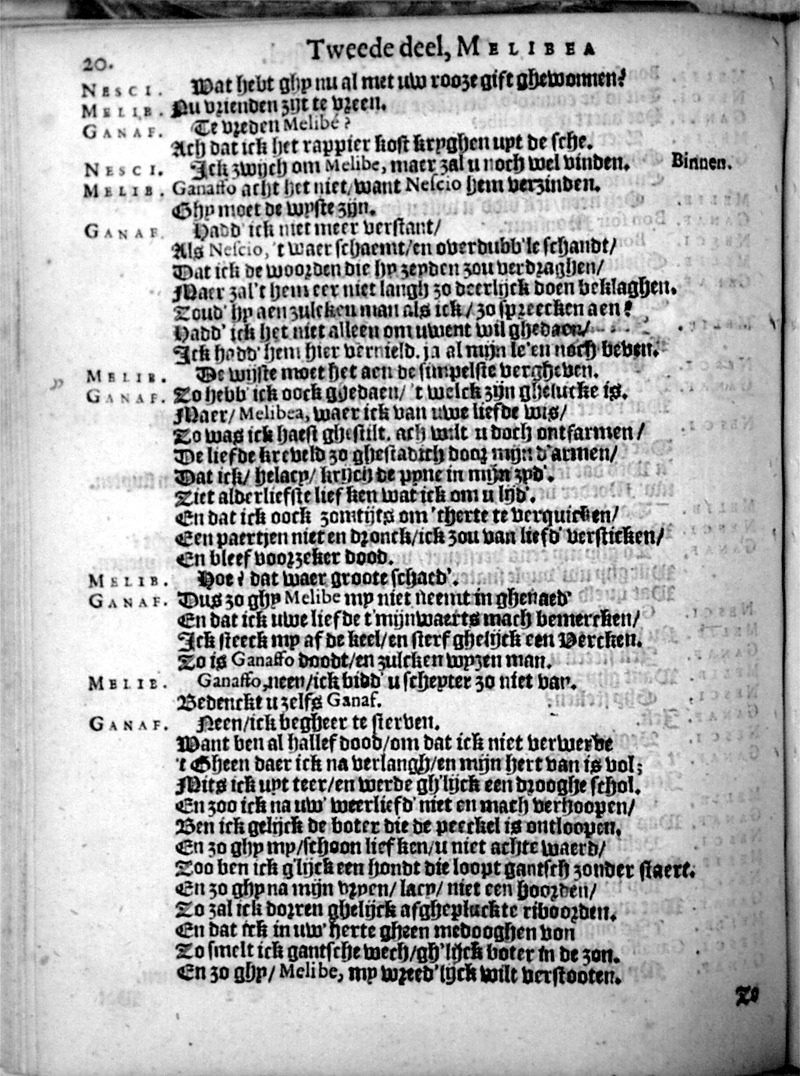 20.
Tweede deel, MELIBEA
NESCI. Wat hebt ghy nu al met uw rooze gift ghewonnen?
MELIB. Nu vrienden zijt te vreen.
GANAF. Te vreden Melibé?
Ach dat ick het rappier kost kryghen uyt de sche.
NESCI. Ick zwijch om Melibe, maer zal u noch wel vinden. Binnen.
MELIB. Ganasso acht het niet/want Nescio hem verzinden.
Ghy moet de wyste zijn.
GANAF. Hadd' ick niet meer verstant/
Als Nescio, 't waer schaemt/en overdubb'le schandt/
Dat ick de woorden die hy zeyden zou verdraghen/
Maer zal't hem eer niet langh zo deerlijck doen beklaghen.
Zoud' hy aen zulcken man als ick/zo spreecken aen?
Hadd' ick het niet alleen om uwent wil ghedaen/
Ick hadd' hem hier vernield. ja al mijn le'en noch beven.
MELIB. De wijste moet het aen de simpelste vergheven.
GANAF. Zo hebb' ick oock ghedaen/ 't welck zijn ghelucke is.
Maer/ Melibea, waer ick van uwe liefde wis/
Zo was ick haest ghestilt. ach wilt u doch ontfarmen/
De liefde kreveld zo ghestadich door mijn d'armen/
Dat ick/ helacy/ krijch de pyne in mijn zyd'.
Ziet alderliefste lief ken wat ick om u lijd'.
En dat ick oock zomtijts om 'therte te verquicken/
Een paertjen niet en dronck/ick zou van liefd' versticken/
En bleef voorzeker dood.
MELIB. Hoe? dat waer groote schaed'.
GANAF. Dus zo ghy Melibe my niet neemt in ghenaed'
En dat ick uwe liefde t'mijnwaerts mach bemercken/
Ick steeck my af de keel/en sterf ghelijck een Vercken.
Zo is Ganasso doodt/en zulcken wyzen man.
MELIE. Ganasso, neen/ick bidd' u schepter zo niet van.
Bedenckt u zelfs Ganaf.
GANAF. Neen/ick begheer te sterven.
Want ben al hallef dood/om dat ick niet verwerve
't Gheen daer ick na verlangh/en mijn hert van is vol;
Mits ick uyt teer/en werde gh'lijck een drooghe schol.
En zoo ick na uw' weerliefd' niet en mach verhoopen/
Ben ick gelijck de boter die de peeckel is ontloopen.
En zo ghy my/schoon lief ken/u niet achte waerd/
Zoo ben ick g'lijck een hondt die loopt gantsch zonder staert.
En zo ghy na mijn vryen/ lacy/ niet een hoorden/
Zo zal ick dorren ghelijck afgheplucte riboorden.
En dat ick in uw' herte gheen medooghen von
Zo smelt ick gantsche wech/gh'lijck boter in de zon.
En zo ghy/ Melibe, my wreed'lijck wilt verstooten.
Zo